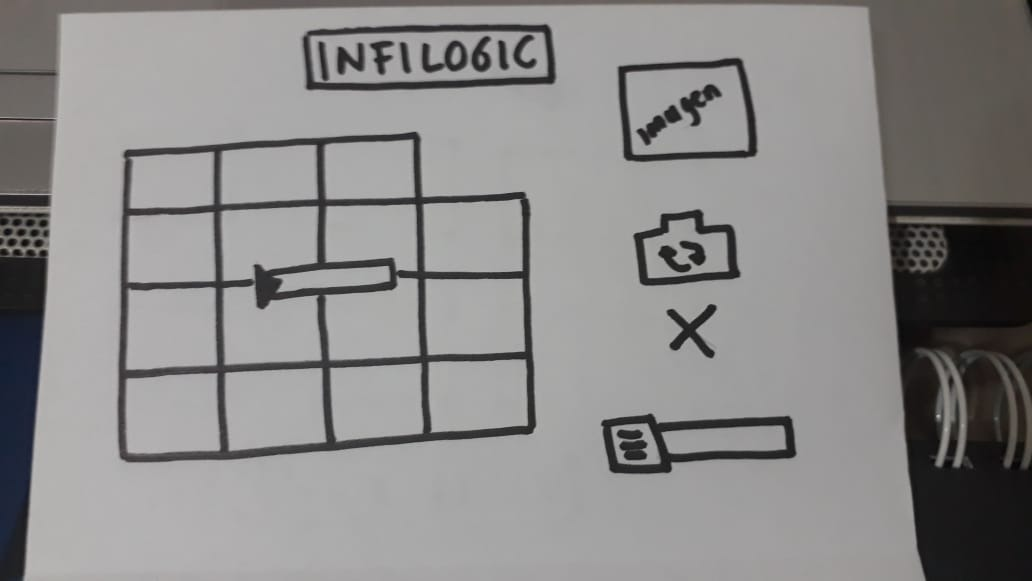 INFILOGIC
imagen
X